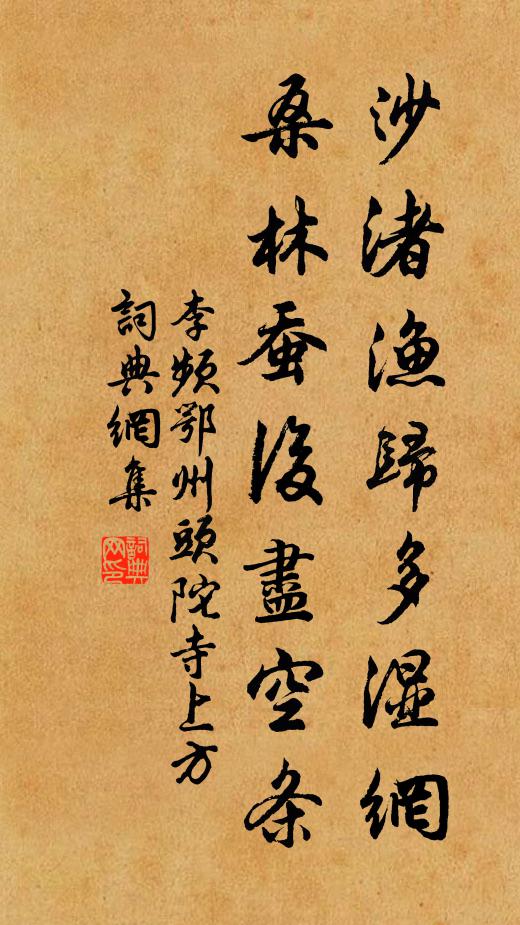 沙渚漁歸多濕網
桑林蚕後盡空条
李頻鄂州頭陀寺上方
詞典網集
詞典网印